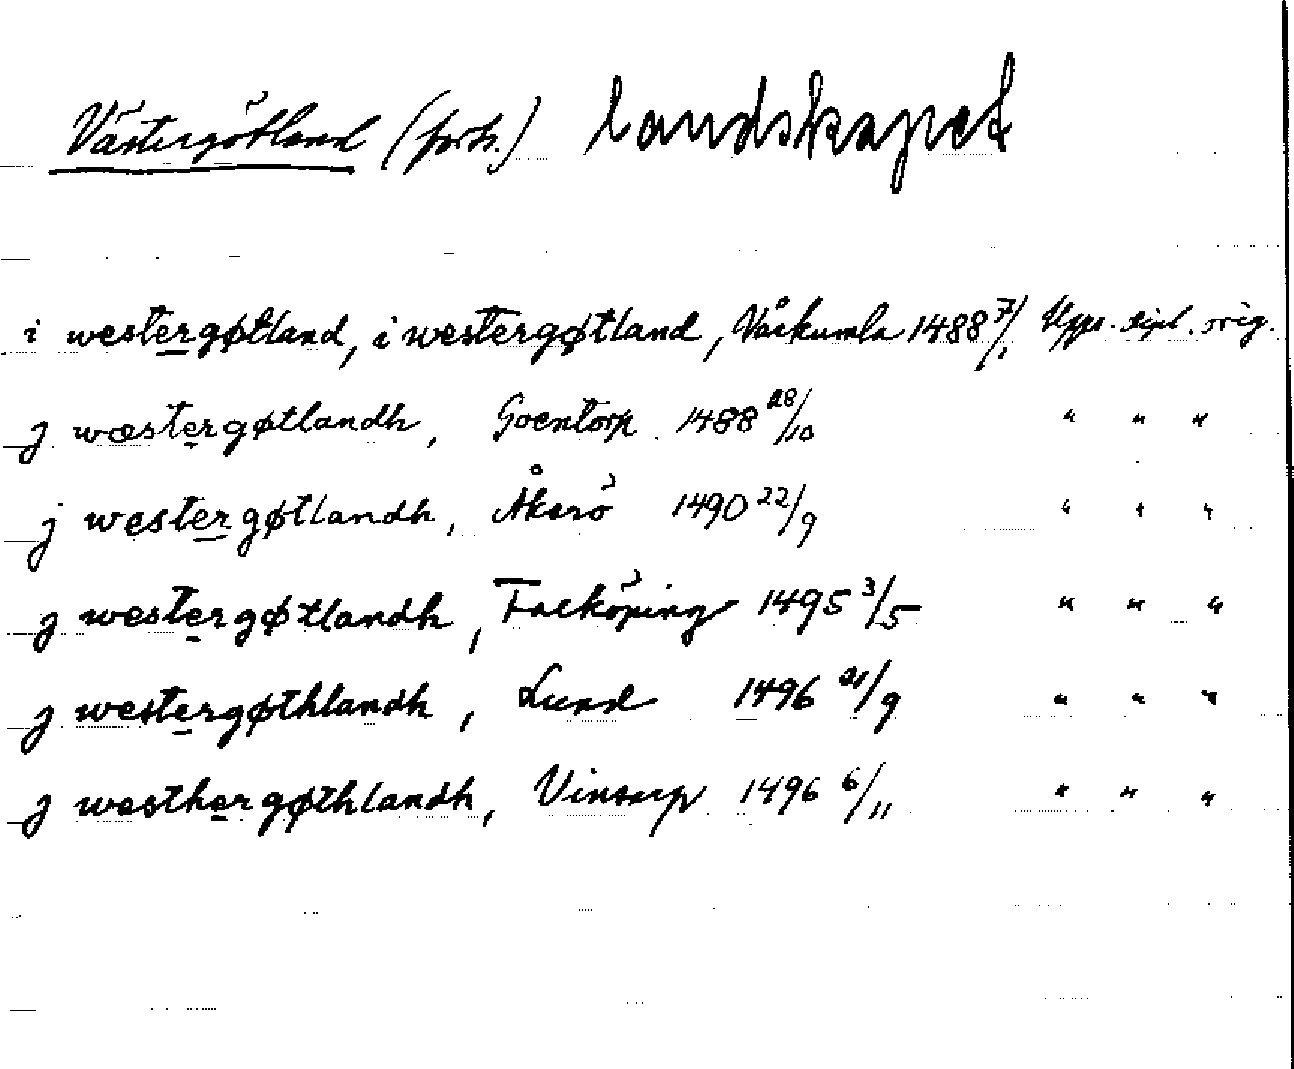 Västergötland (forts.) landskapet
i westergøtland, i westergøtland, Vårkumla 1488 7/1 Upps. dipl. orig.
j wæstergøtlandh, Goentorp 1488 28/10 " " "
j westergøtlandh, Åkerö 1490 22/9 " " "
j westergøtlandh, Falköping 1495 3/5 " " "
j westergøthlandh, Lund 1496 21/9 " " "
j westhergøthlandh, Vinstorp 1496 6/11 " " "